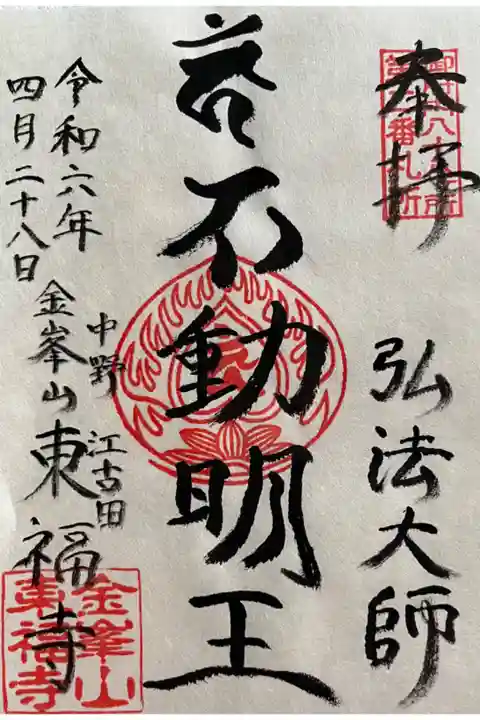 御府内八十八ヶ所
第二番札所
奉拝
弘法大師
不動明王
令和六年
四月二十八日
中野
江古田
金峯山東福寺
金峯山
東福寺